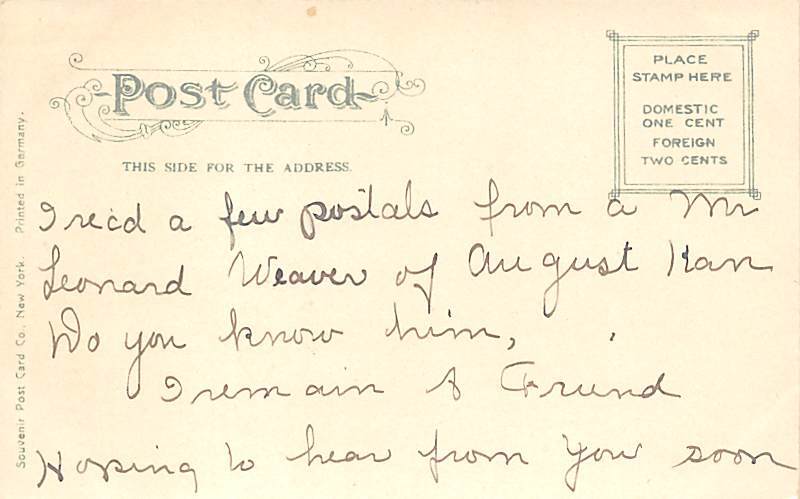 Post Card
THIS SIDE FOR THE ADDRESS.
PLACE
STAMP HERE
DOMESTIC
ONE CENT
FOREIGN
TWO CENTS
Souvenir Post Card Co., New York. Printed in Germany.
I rec'd a few postals from a Mr
Leonard Weaver of August Kan
Do you know him,
I remain A Friend
Hoping to hear from you soon